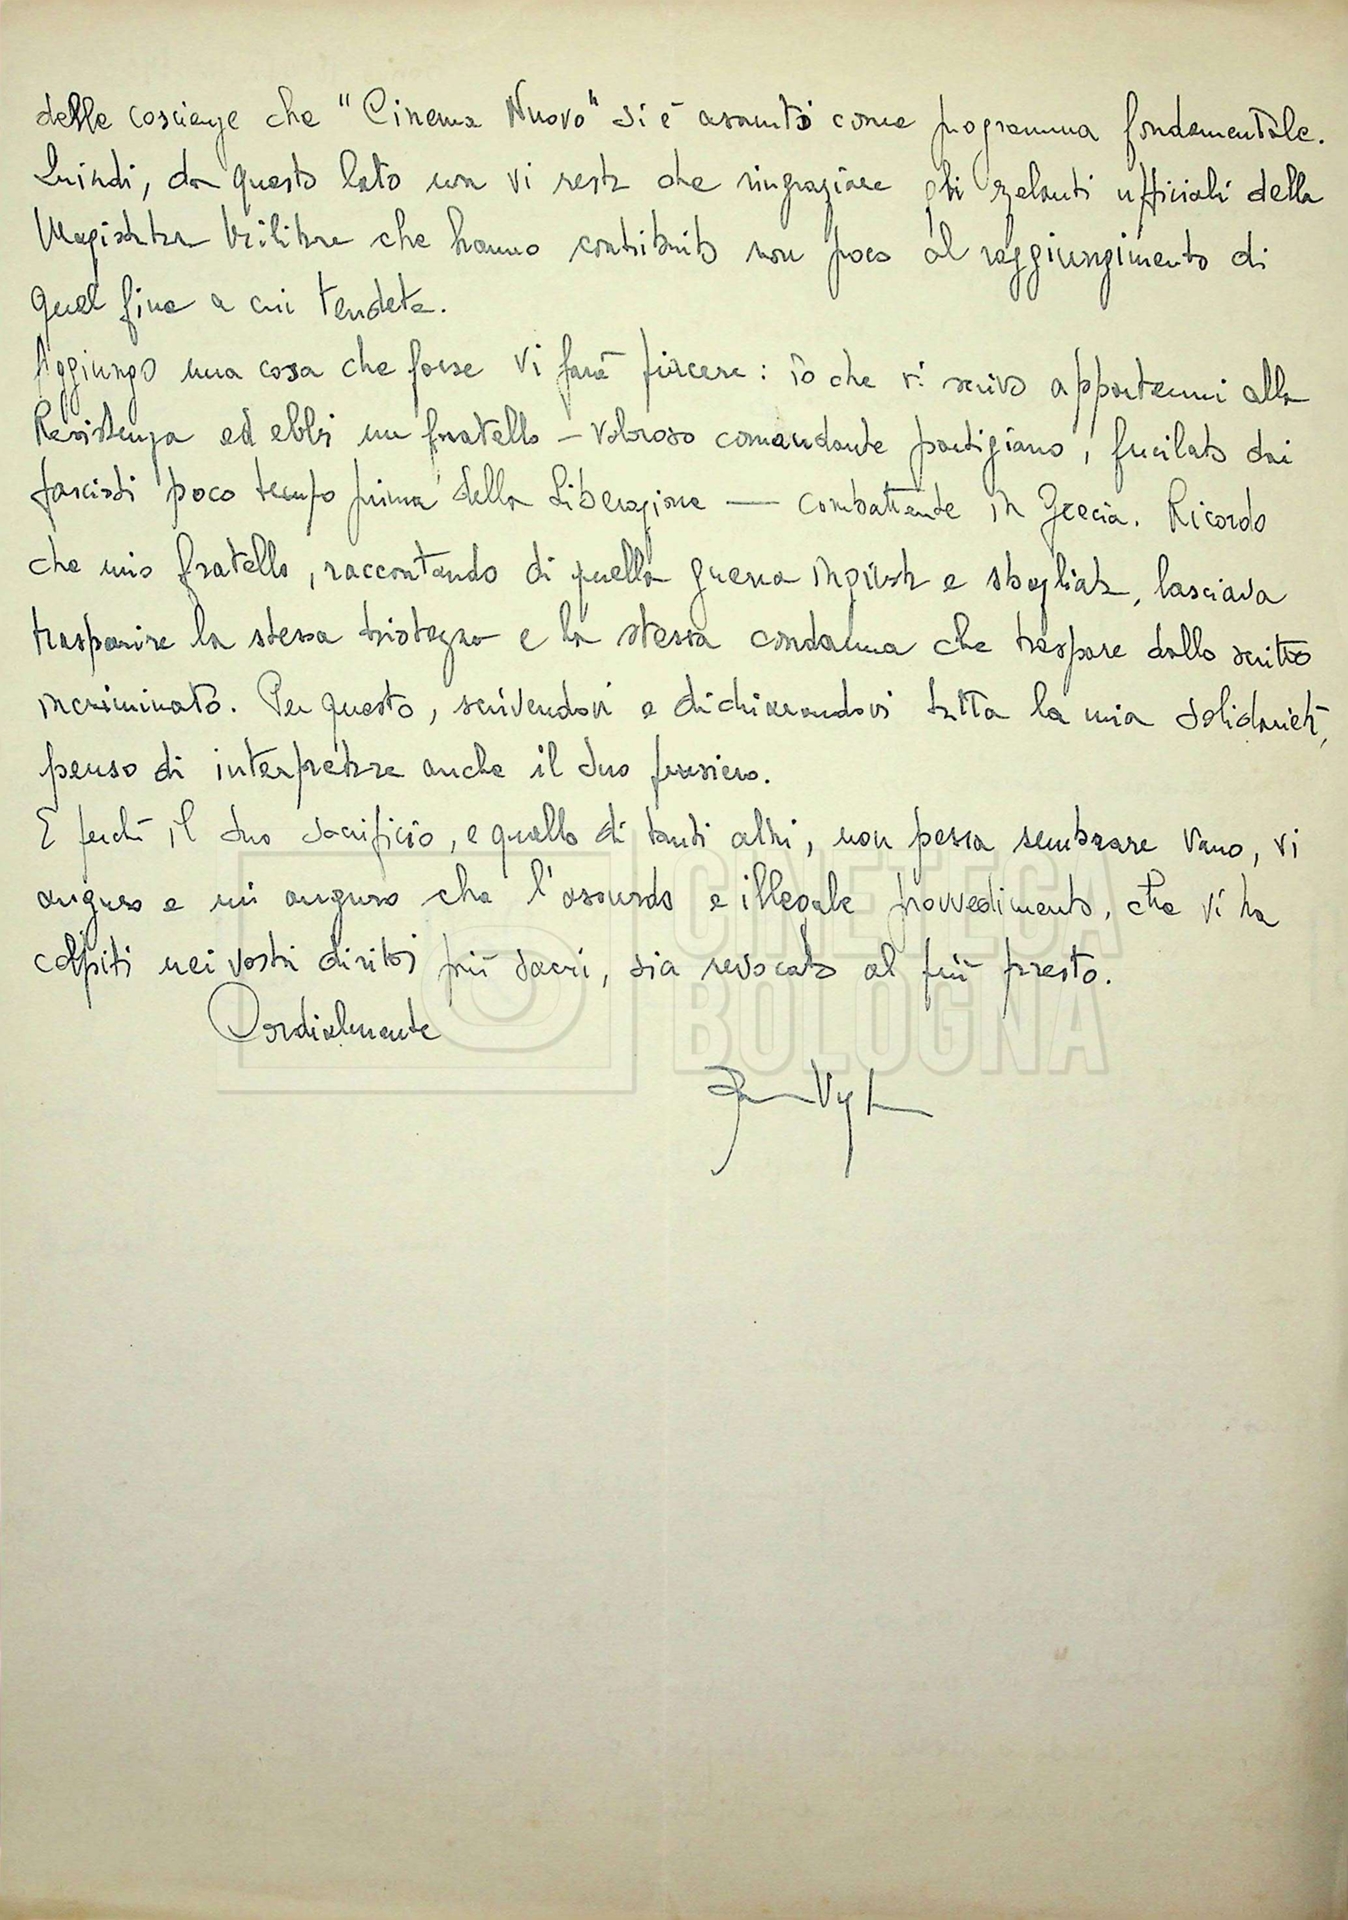 delle coscienze che "Cinema Nuovo" si è assunto come programma fondamentale.
Quindi, da questo lato non vi resta che ringraziare gli zelanti ufficiali della
Magistratura Militare che hanno contribuito non poco al raggiungimento di
quel fine a cui tendete.
Aggiungo una cosa che forse vi farà piacere: io che vi scrivo appartenni alla
Resistenza ed ebbi un fratello – valoroso comandante partigiano, fucilato dai
fascisti poco tempo prima della Liberazione — combattente in Grecia. Ricordo
che mio fratello, raccontando di quella guerra ingiusta e sbagliata, lasciava
trasparire la stessa tristezza e la stessa condanna che traspare dallo scritto
incriminato. Per questo, scrivendovi e dichiarandovi tutta la mia solidarietà,
penso di interpretare anche il suo pensiero.
E perché il suo sacrificio, e quello di tanti altri, non possa sembrare vano, vi
auguro e mi auguro che l'assurdo e illegale provvedimento, che vi ha
colpiti nei vostri diritti più sacri, sia revocato al più presto.
Cordialmente
CINETECA
BOLOGNA